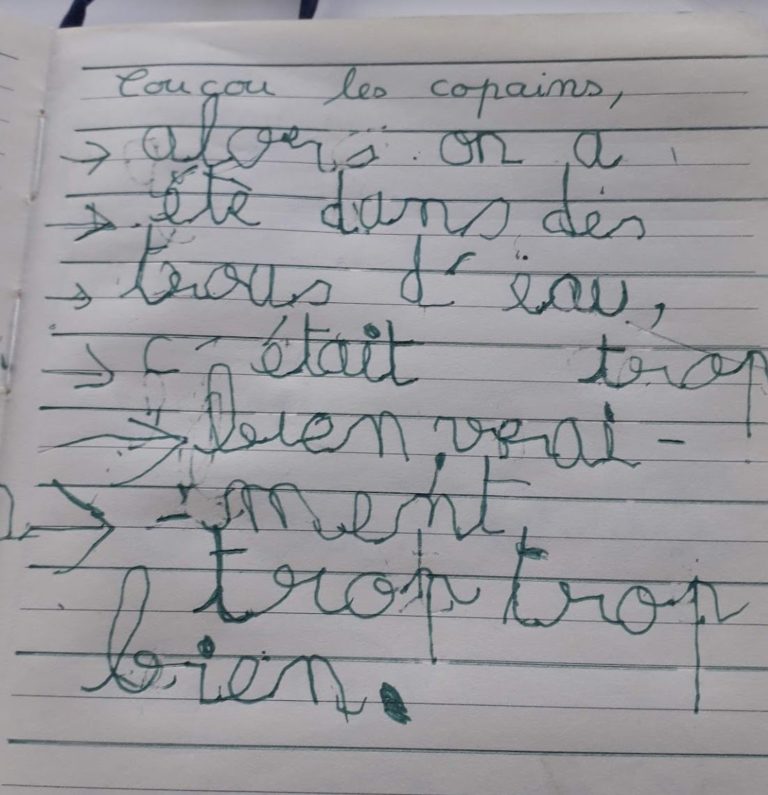 Coucou les copains,
→ alors on a
→ été dans des
→ trous d'eau,
→ c'était trop
→ bien vrai-
→ -ment
trop trop
bien.